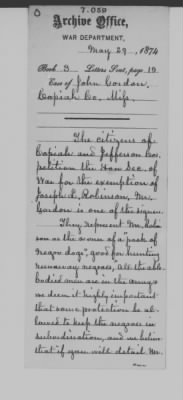 7.059
Archive Office,
WAR DEPARTMENT,
May 29, 1874
Book 3 Letters Sent, page 19
Case of John Gordon,
Copiah Co. Miss.
The citizens of
Copiah and Jefferson Cos.
petition the Hon Sec. of
War for the exemption of
Joseph L. Robinson, Mr.
Gordon is one of the signers.
They represent Mr. Robin
son as the owner of a "pack of
negro dogs", good for hunting
runaway negroes, "All the able
bodied men are in the army &
we deem it highly important
that some protection be al-
lowed to keep the negroes in
subordination, and we believe
that if you will detail Mr.